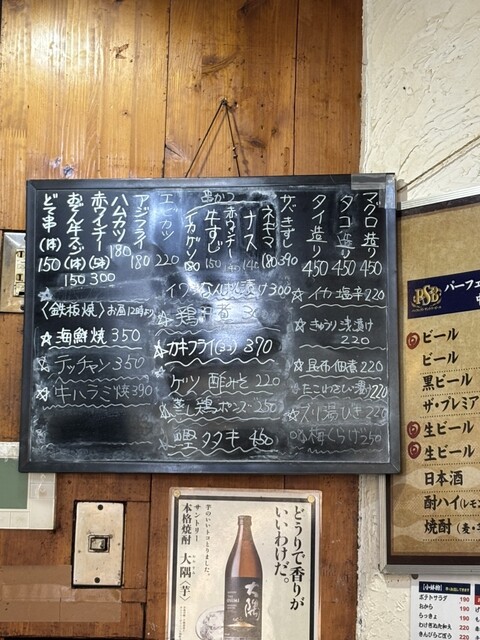 マグロ造り 450
タコ造り 450
タイ造り 450
きずし 390
串かつ
ネギマ 180
ナス
赤ウィンナー
牛すじ 150
イカゲソ 180
エビカツ 220
アジフライ 180
ハムカツ 180
赤ウィンナー (5本) 300
(体) 150
どて串 (体) 150
300
☆イカ塩辛 220
☆きゅうり浅漬け 220
☆昆布佃煮 220
☆たこわさび漬け 220
☆ズリ湯びき 220
☆梅くらげ 250
☆カキフライ(3コ) 370
☆ゲソ酢みそ 220
☆蒸し鶏ポンズ 250
☆鰹タタキ 450
〈鉄板焼〉お昼12時より
☆海鮮焼 350
☆テッチャン 350
☆牛ハラミ焼 390
PSB
パーフェ
ビール
ビール
黒ビール
ザ・プレミア
生ビール
生ビール
日本酒
酎ハイ(レモン
焼酎(麦・芋
どうりで香りが
いいわけだ。
芋のいいトコとりました。
サントリー
本格焼酎 大隅〈芋〉
大隅
【小鉢物】
ポテトサラダ 190
おから 190
らっきょ 190
わけぎぬた和え 220
きんぴらごぼう 220